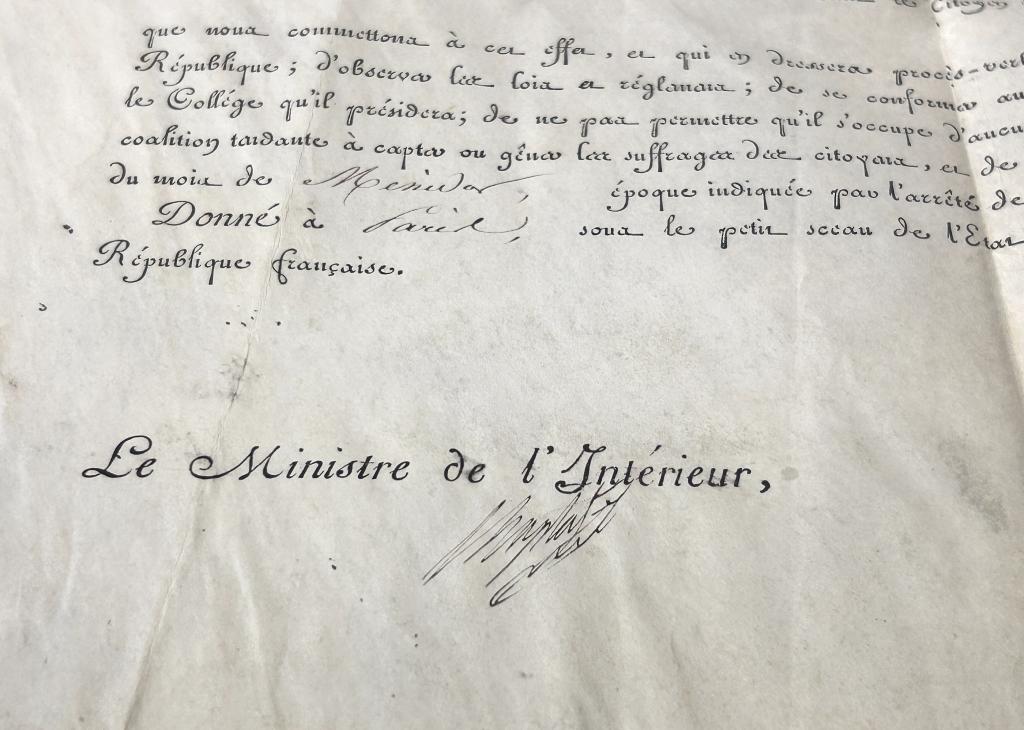 Citoyen
que nous commettons à cet effet, et qui en dressera procès-verb
République; d'observer les lois et réglemens; de se conformer au
le Collége qu'il présidera; de ne pas permettre qu'il s'occupe d'aucu
coalition tendante à capter ou gêner les suffrages des citoyens, et de
du mois de Messidor, époque indiquée par l'arrêté de
Donné à Paris, sous le petit sceau de l'Etat
République française.
Le Ministre de l'Intérieur,
Chaptal